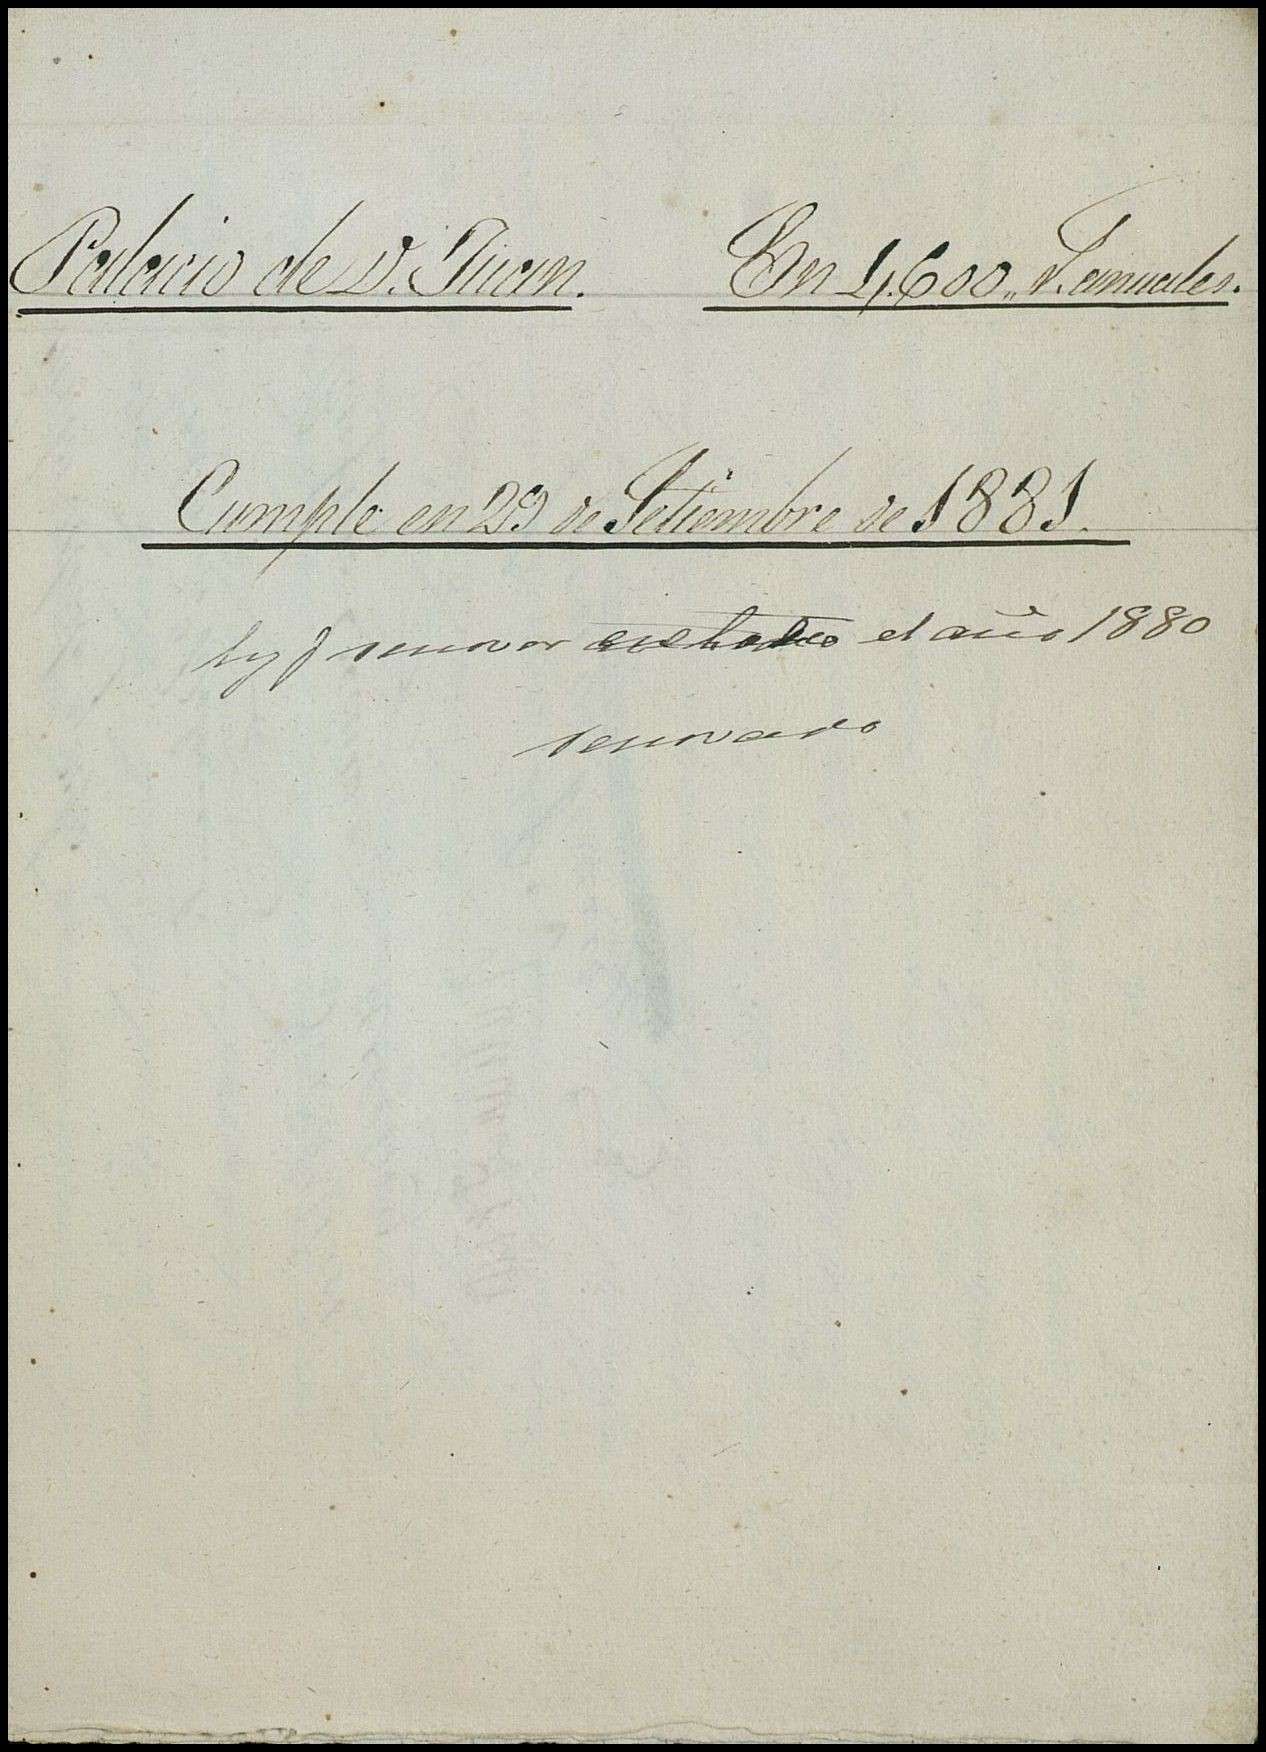 Palacio de D. Juan. En 4,600 „ r.s anuales.
Cumple en 29 de Setiembre de 1881.
hay q renovar el año 1880
renovado